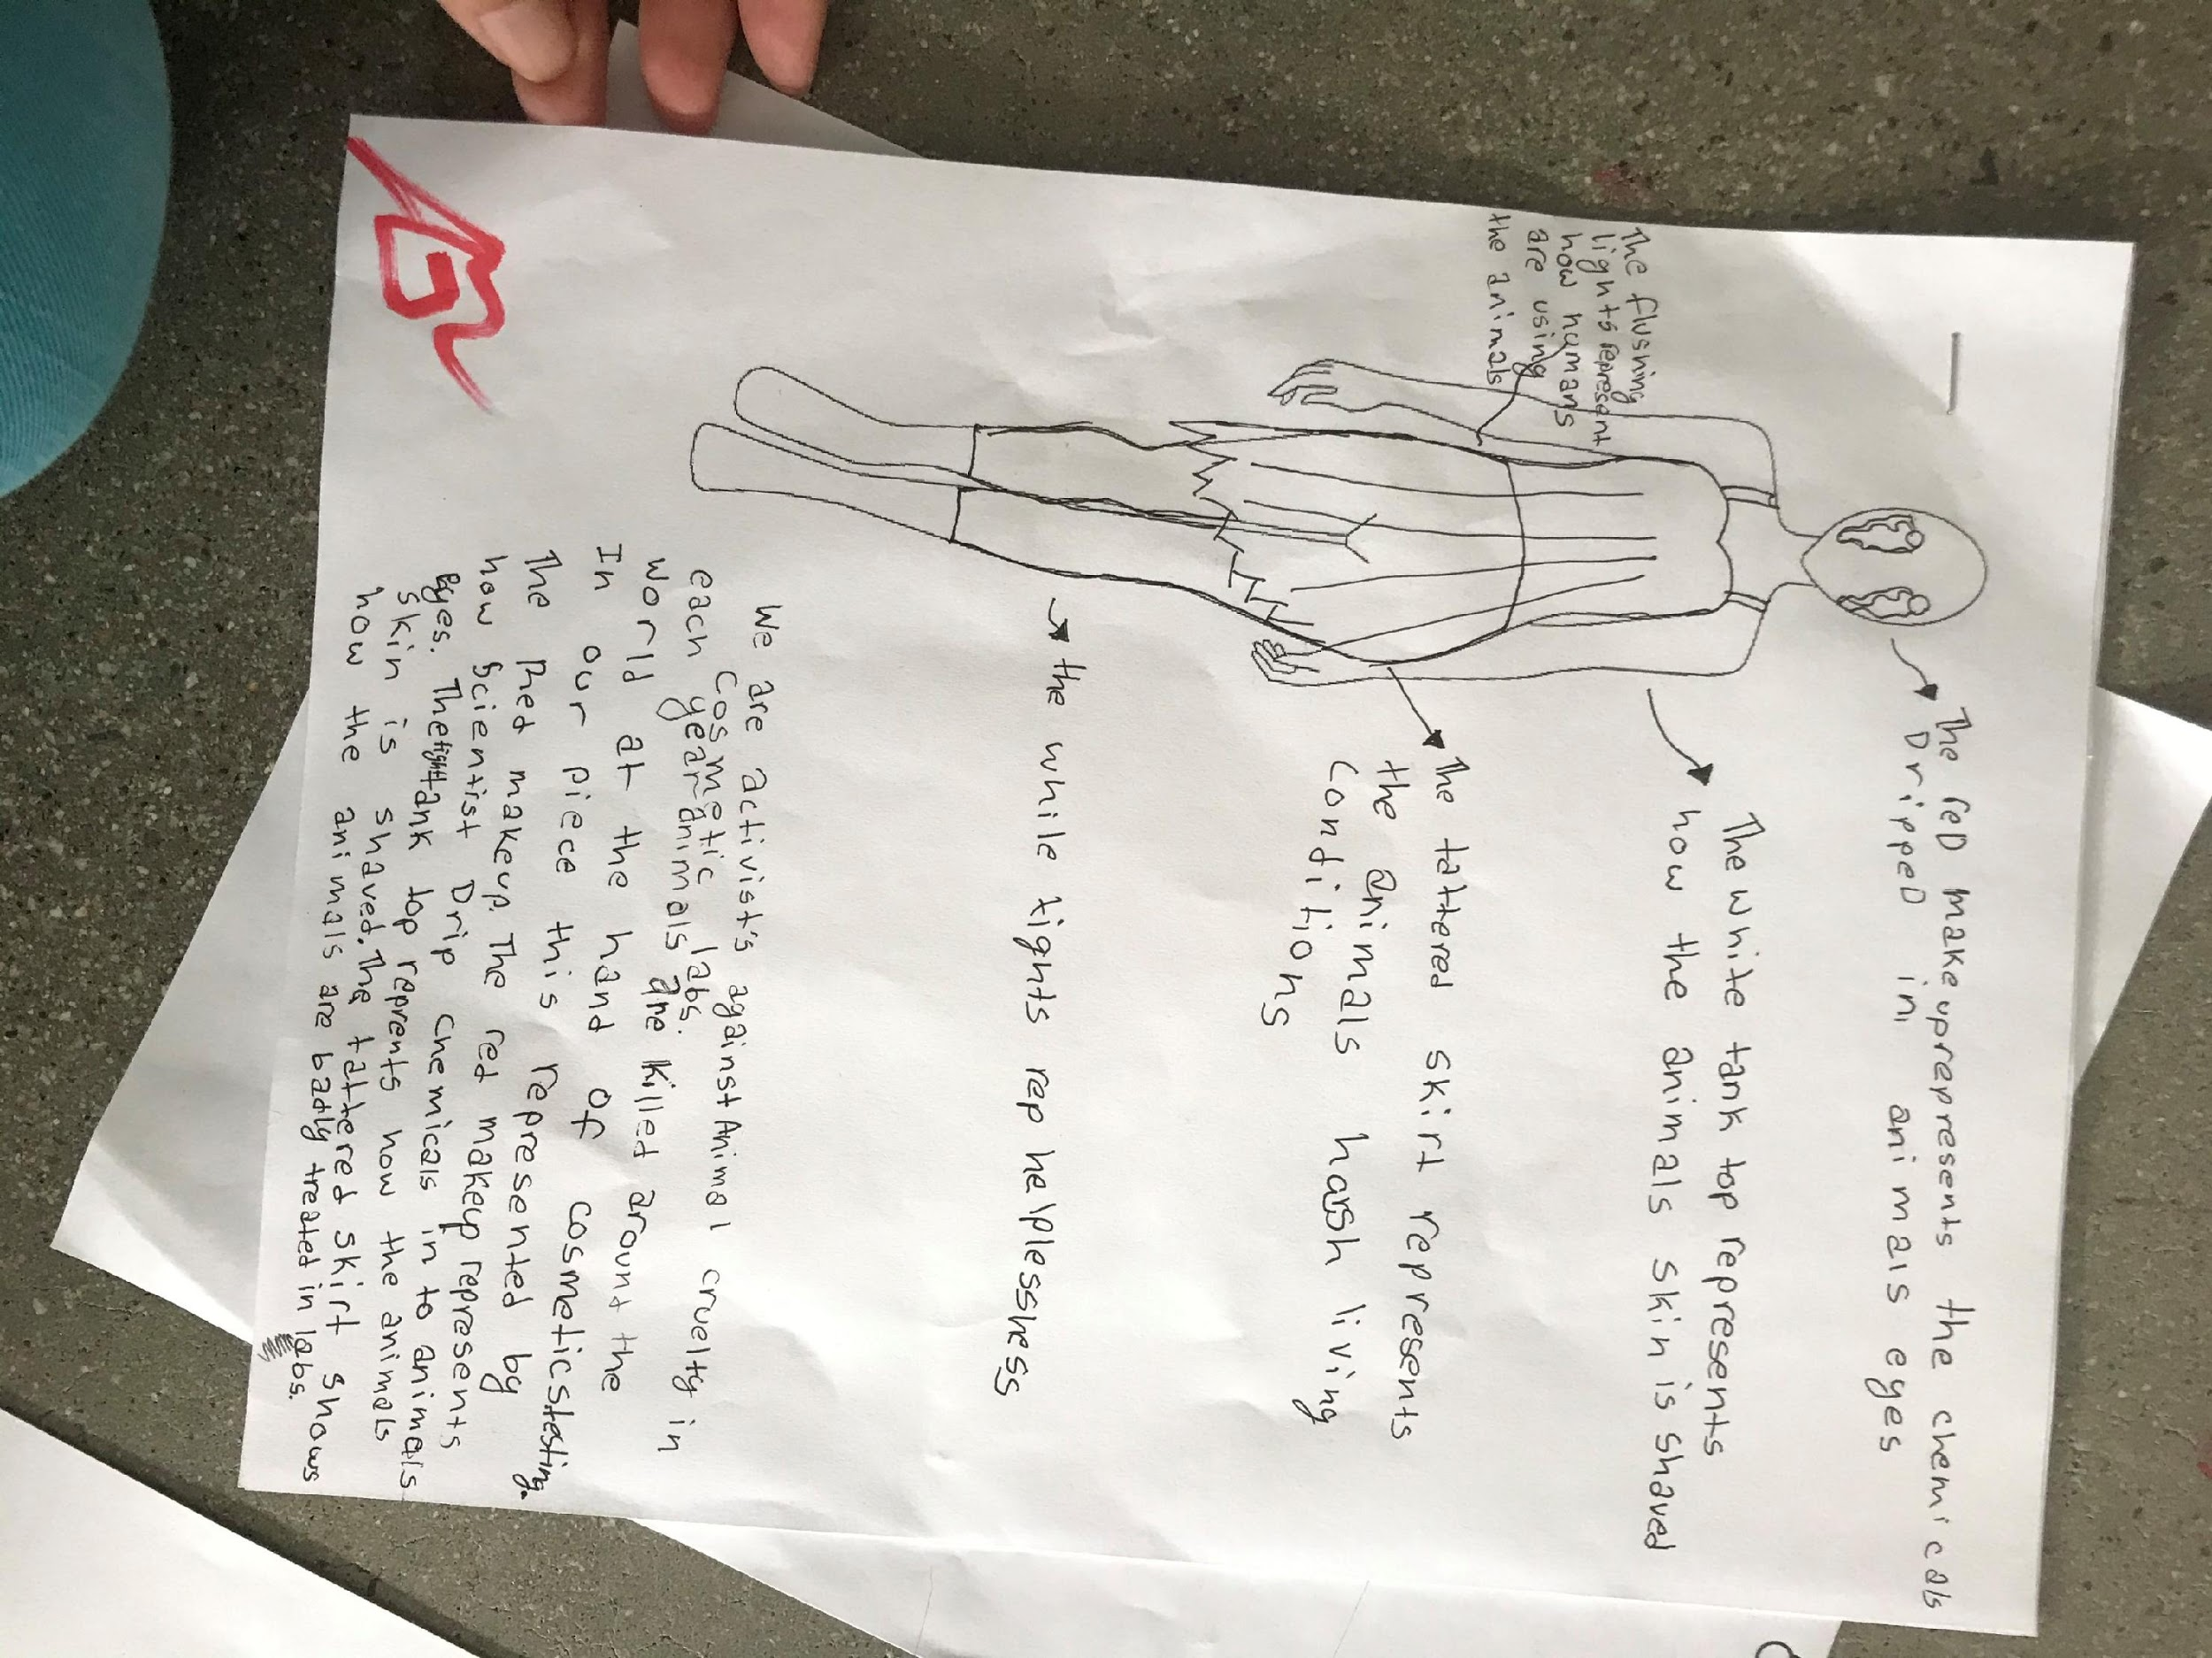 The reD make up represents the chemicals
DrippeD in animals eyes
The white tank top represents
how the animals skin is shaved
The flashing
lights represent
how humans
are using
the animals
The tattered skirt represents
the animals harsh living
conditions
the while tights rep helplessness
We are activist's against Animal cruelty in
cosmetic labs.
each year animals are killed around the
world at the hand of cosmetics testing.
In our piece this represented by
The Red makeup. The red makeup represents
how scientist Drip chemicals in to animals
Eyes. The tank top reprents how the animals
skin is shaved. The tattered skirt shows
how the animals are badly treated in labs.